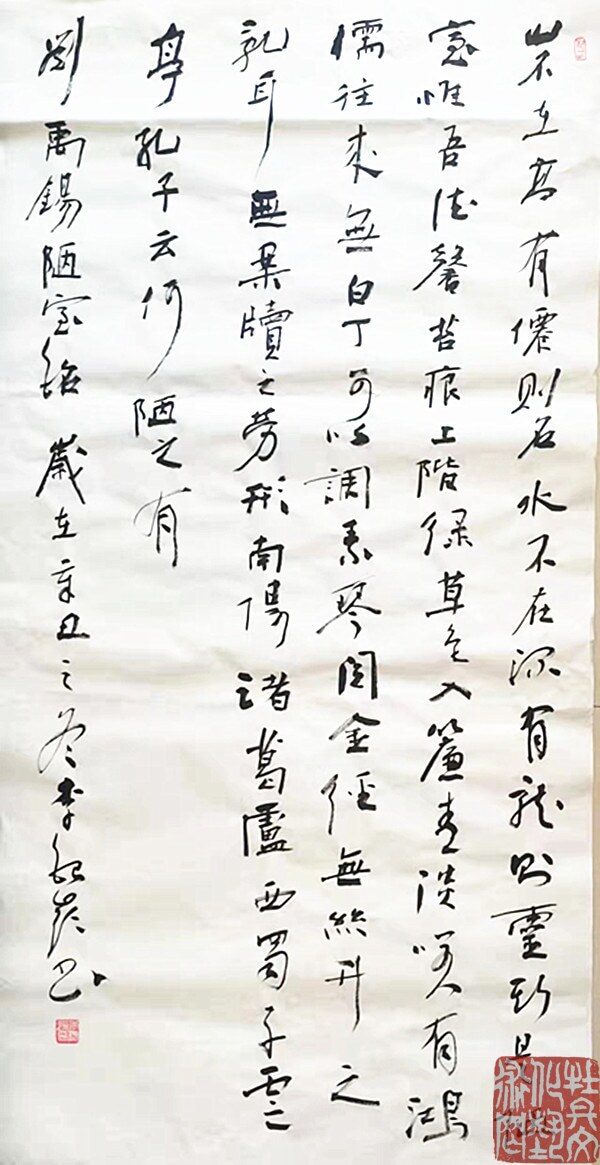 山不在高有僊則名水不在深有龍則靈斯是陋
室惟吾德馨苔痕上階綠草色入簾青談笑有鴻
儒往來無白丁可以調素琴閱金經無絲竹之
亂耳無案牘之勞形南陽諸葛廬西蜀子雲
亭孔子云何陋之有
劉禹錫陋室銘歲在辛丑之冬李書